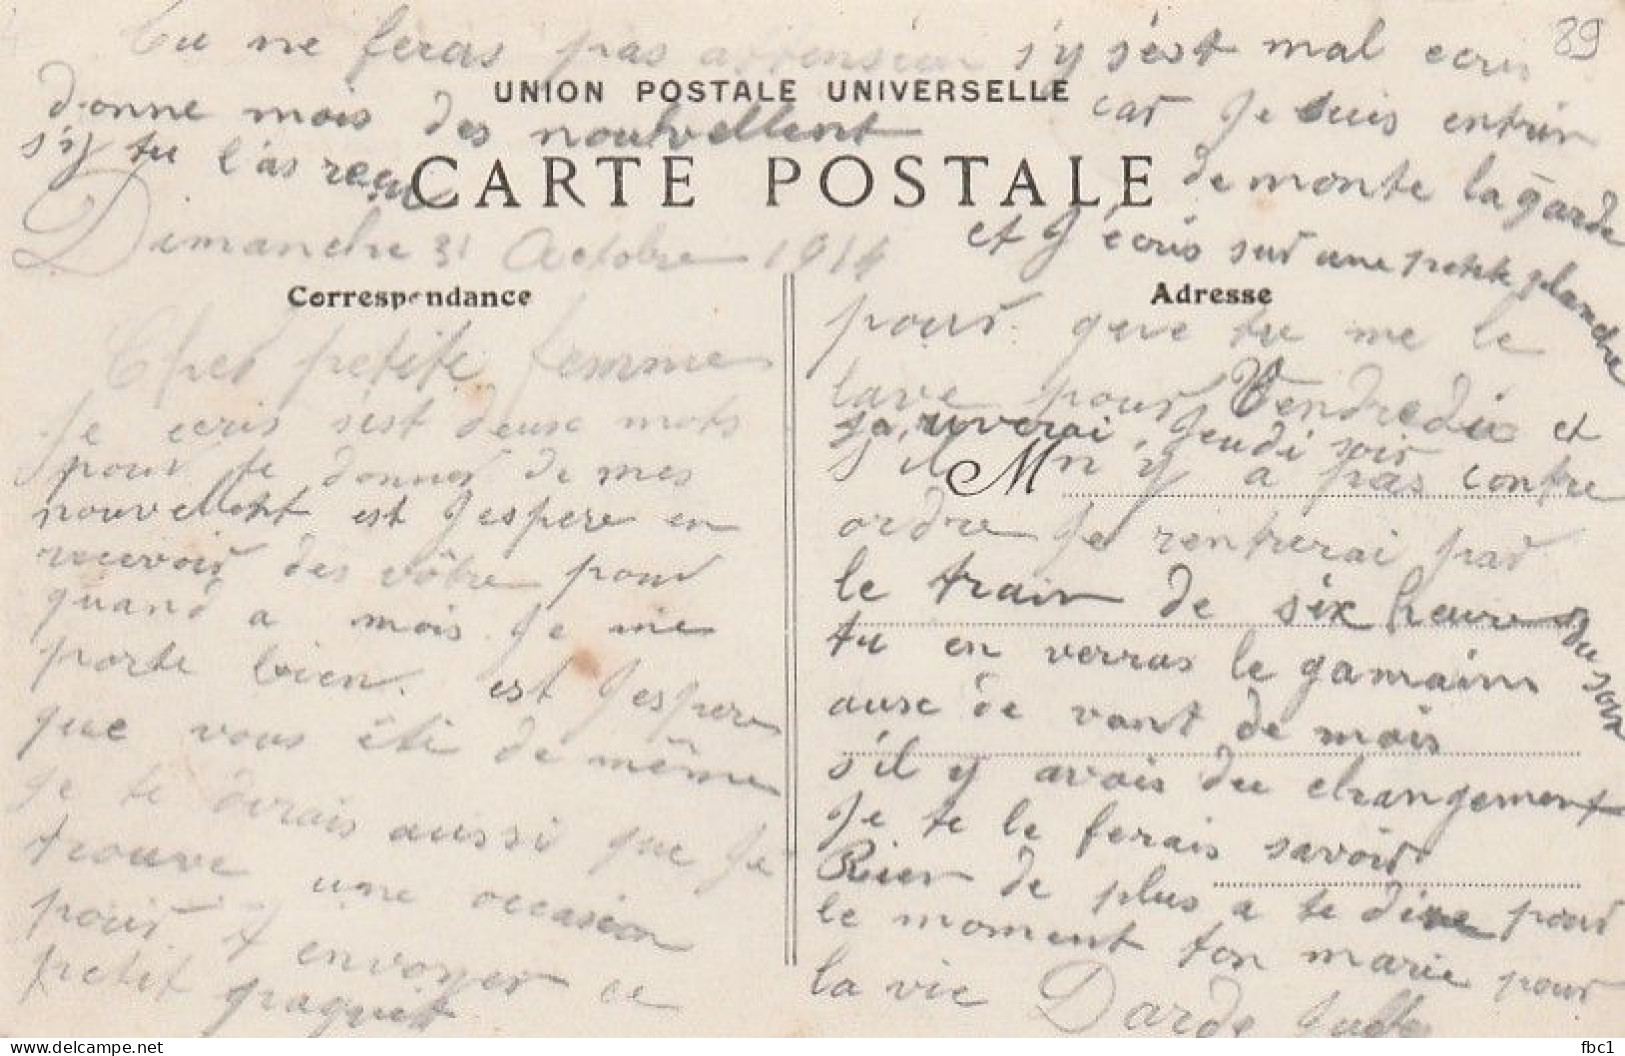 Tu ne feras pas attension s'y s'est mal ecris
89
UNION POSTALE UNIVERSELLE
car Je suis entrin
donne mois des nouvellent
de monte la garde
s'y tu l'as reçu
CARTE POSTALE
et J'écris sur une petite planche
Dimanche 31 Octobre 1914
Correspondance
Adresse
Cher petite femme
Je ecris s'est deux mots
pour te donner de mes
nouvellent est J'espere en
recevoir des vôtre pour
quand a mois Je me
porte bien. est J'espere
que vous éti de même
Je te dirais aussi que Je
trouve une occasion
pour t envoyer ce
petit paquet
pour que tu me le
lave pour Vendredi et
Jeudi soir
s'il n'y a pas contre
M
ordre Je rentrerai par
le train de six heure du soir
tu en verras le gamain
ause de vant de mois
s'il y avais du changement
Je te le ferais savoir
Rien de plus a te dire pour
le moment ton marie pour
la vie Darde
fbc1